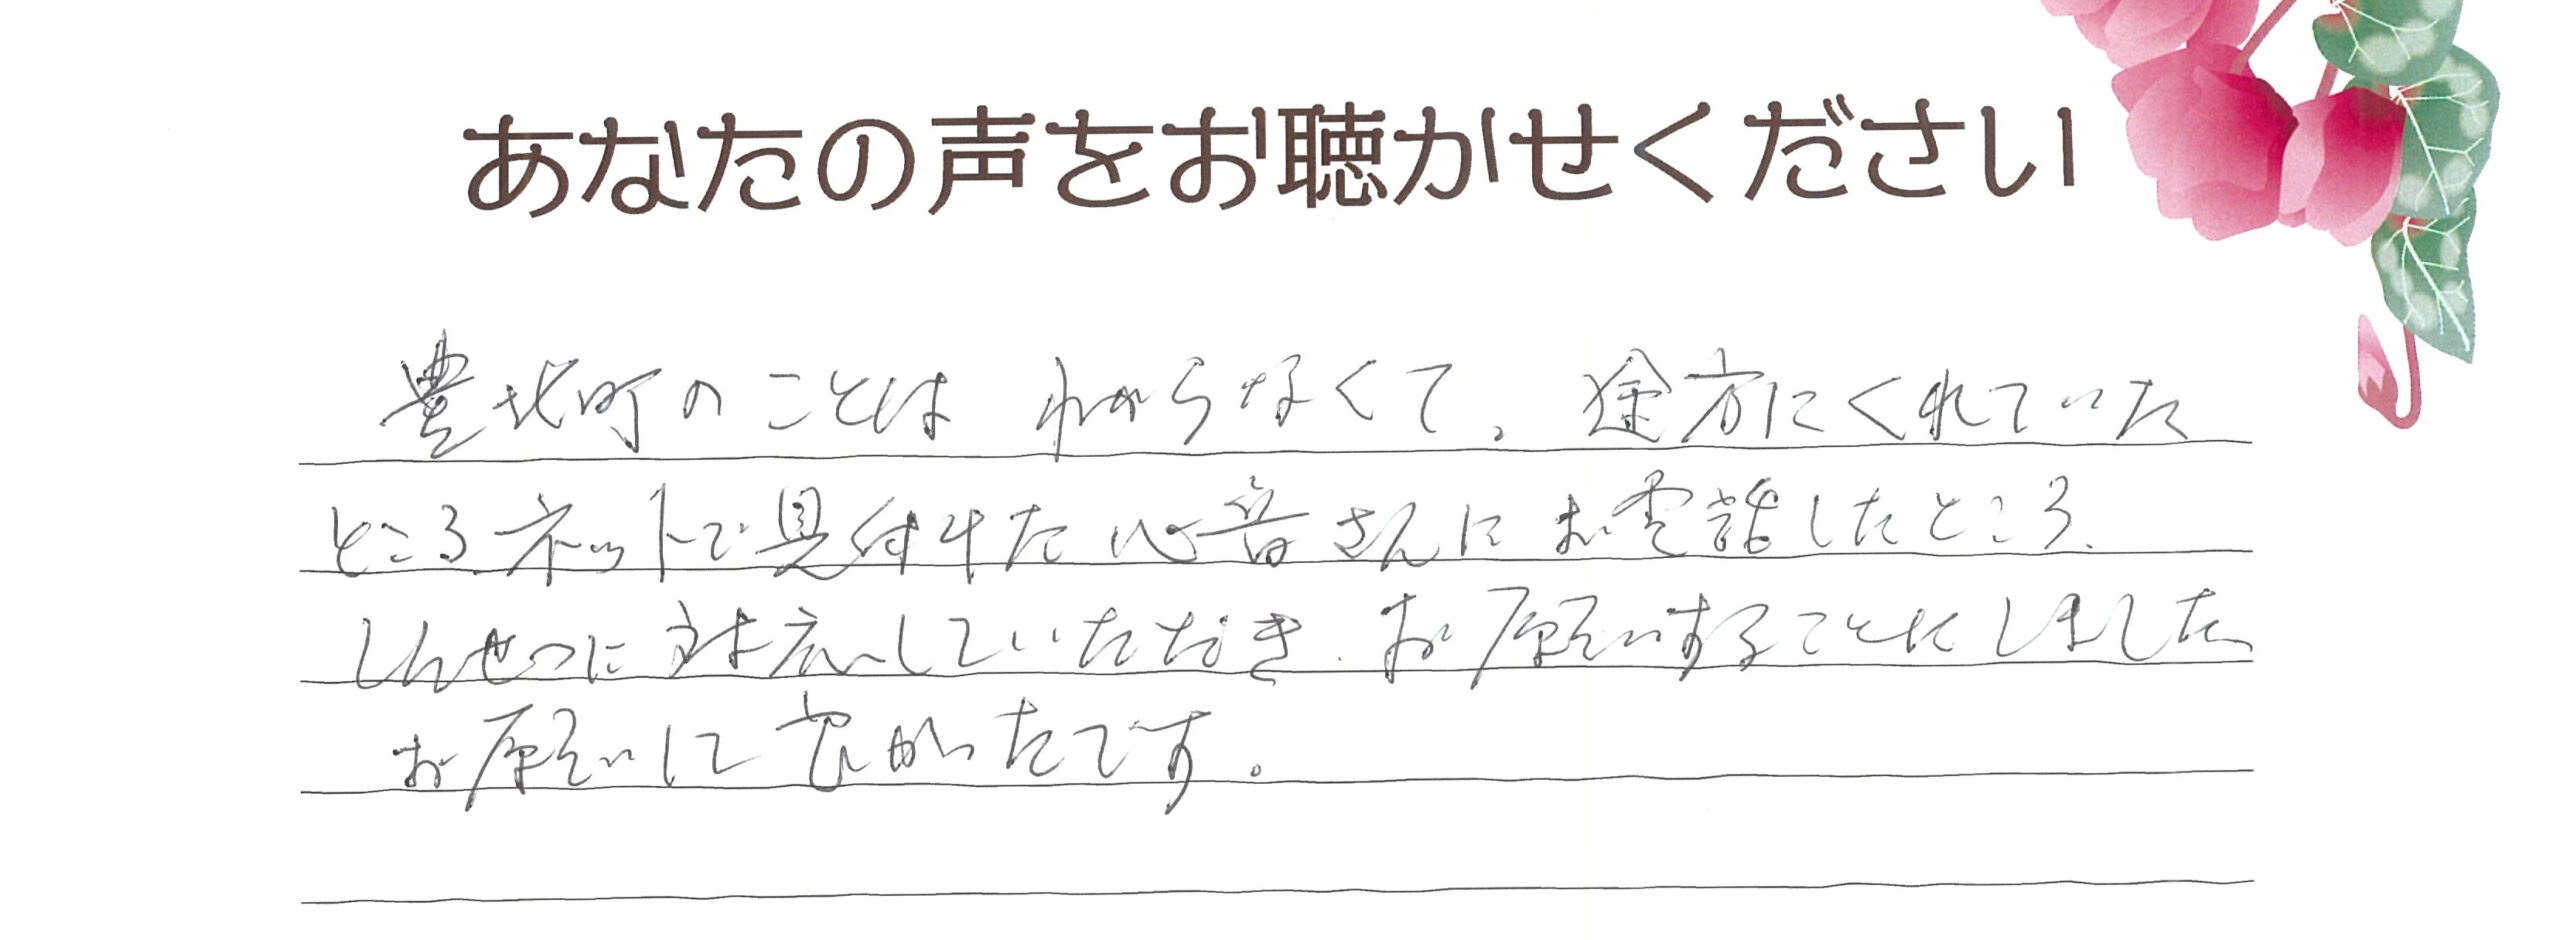 あなたの声をお聴かせください
豊北町のことは わからなくて、途方にくれていた
ところ、ネットで見付けた心音さんにお電話したところ、
しんせつに対応していただき、お願いすることにしました
お願いして良かったです。